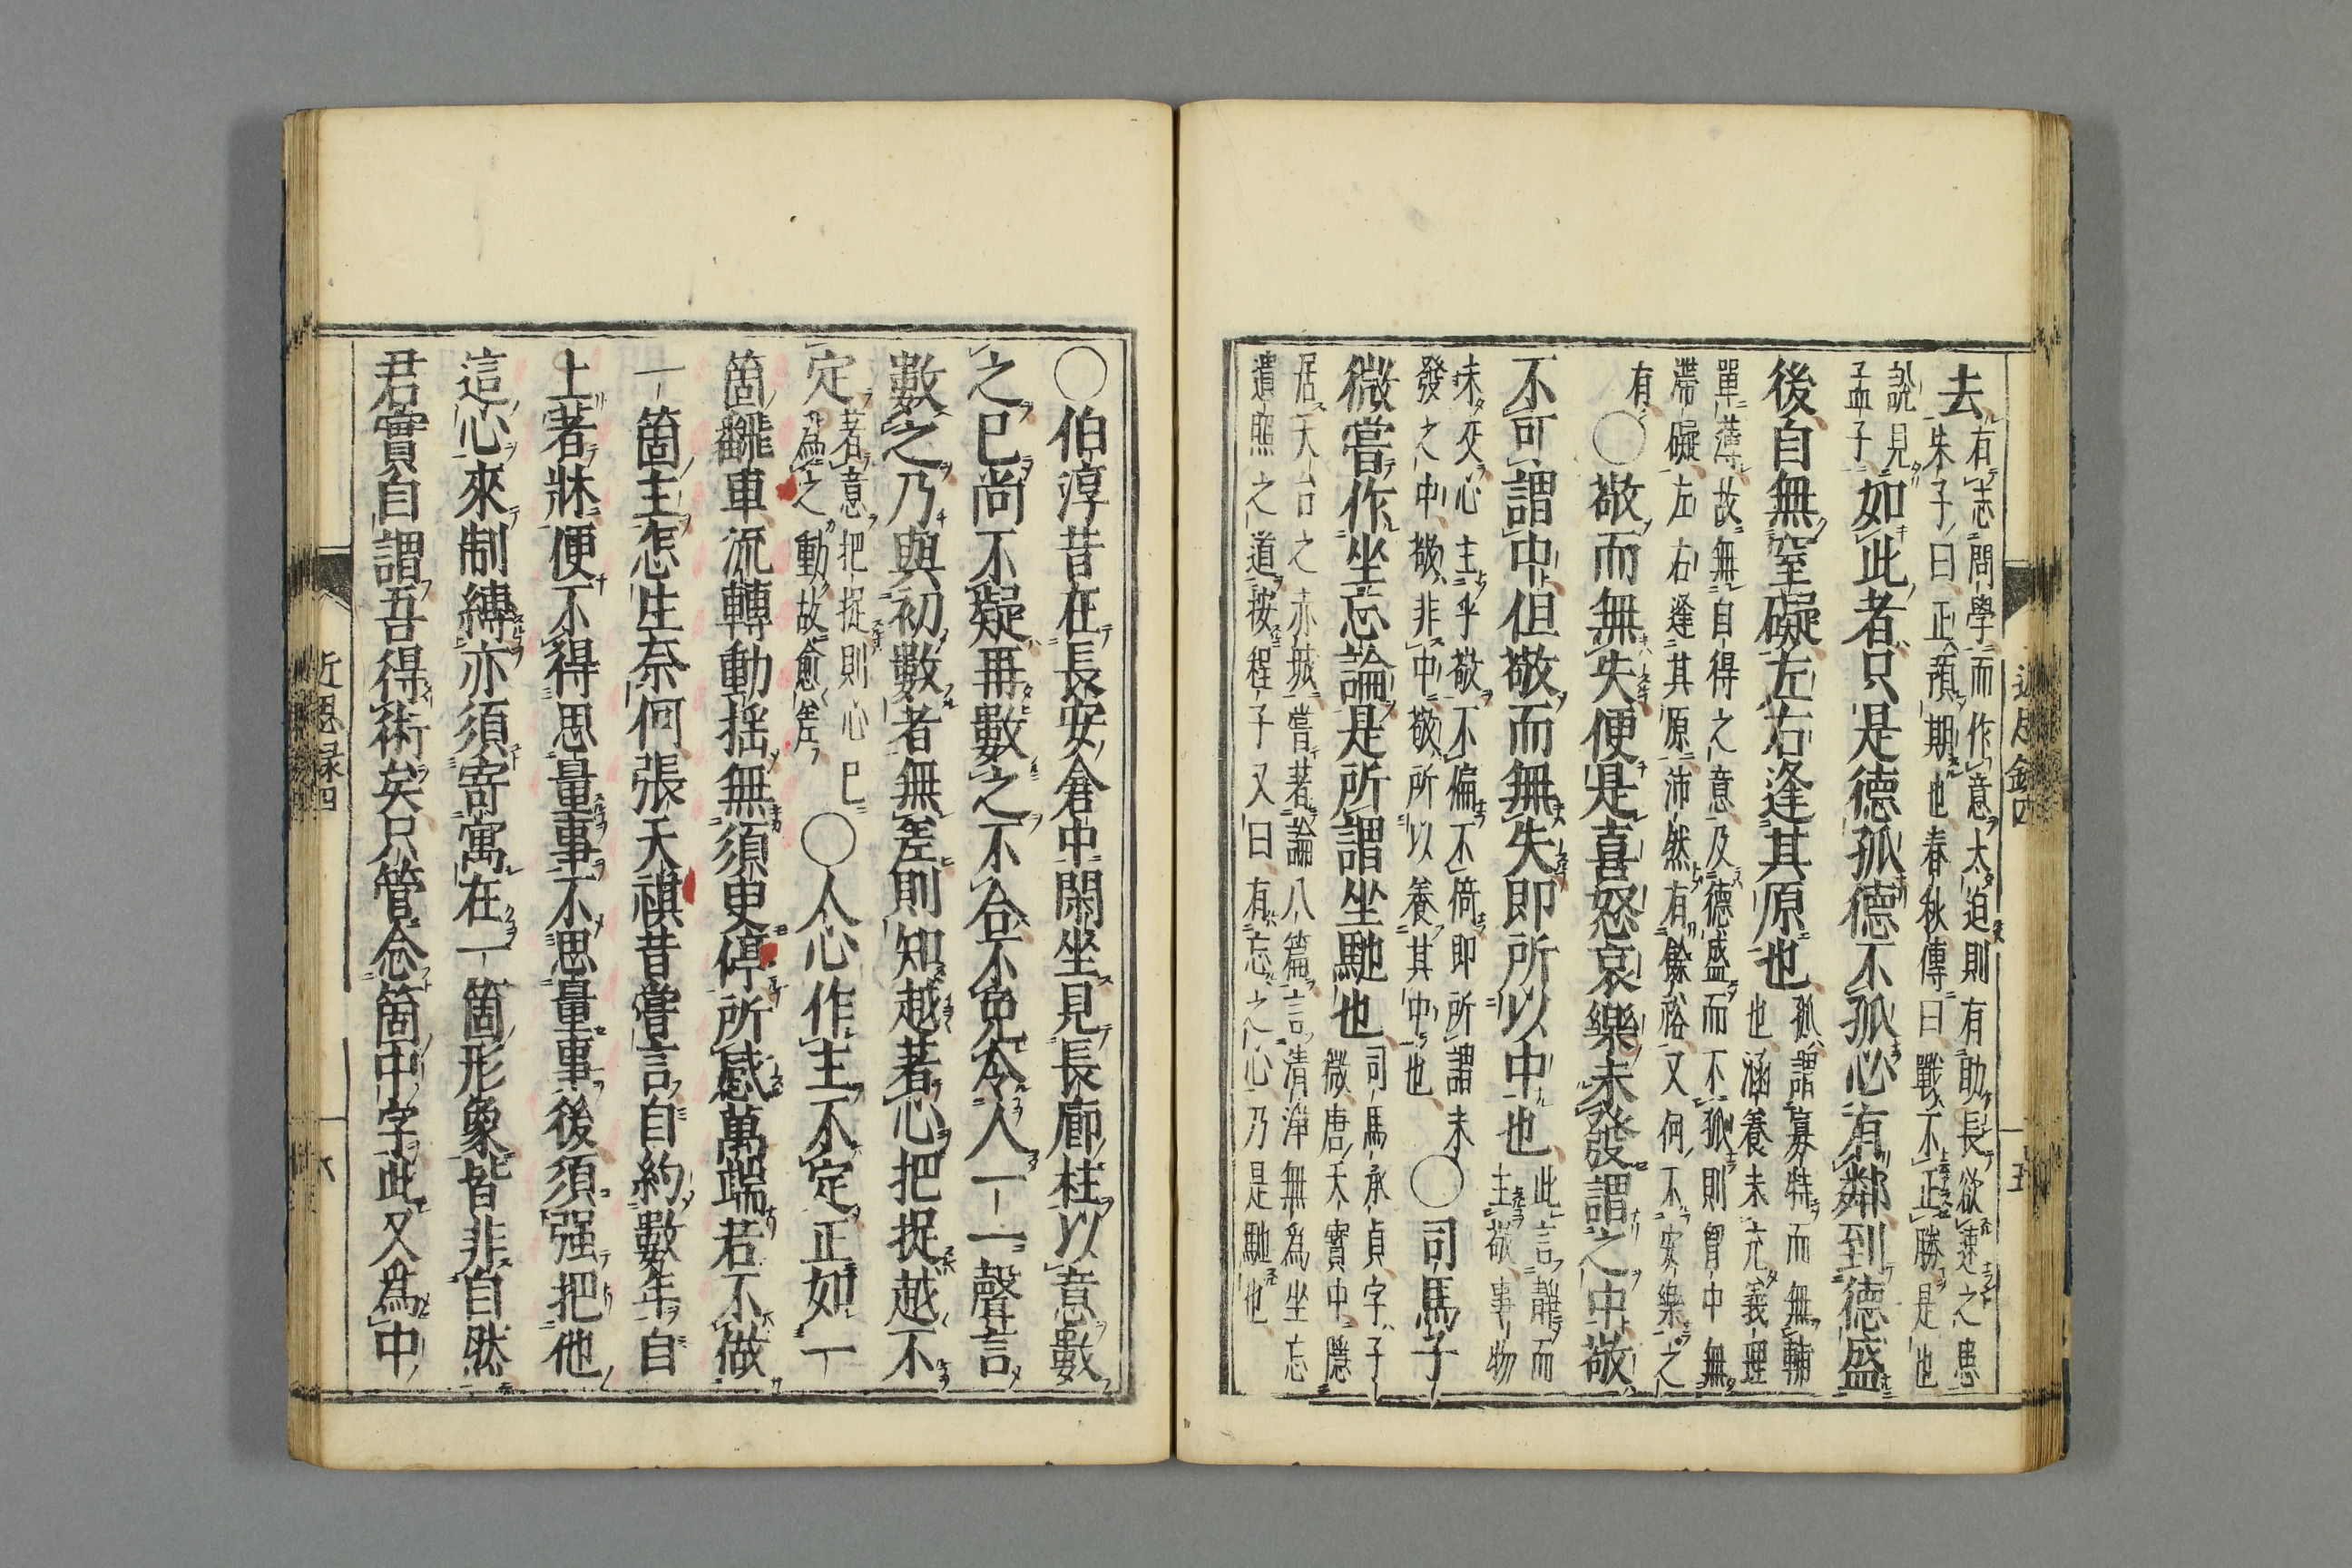 近思錄四　五
去
有志問學而作意太迫則有助長欲速之患
朱子曰正預期也春秋傳曰戰不正勝是也
說見
孟子
如此者只是德孤德不孤必有鄰到德盛
後自無窒礙左右逢其原也
孤謂寡特而無輔
也涵養未充義理
單薄故無自得之意及德盛而不孤則胷中無
滯礙左右逢其原沛然有餘裕又何不安樂之
有
○敬而無失便是喜怒哀樂未發謂之中敬
不可謂中但敬而無失即所以中也
此言靜而
主敬事物
未交心主乎敬不偏不倚即所謂未
發之中敬非中敬所以養其中也
○司馬子
微嘗作坐忘論是所謂坐馳也
司馬承貞字子
微唐天寶中隱
居天台之赤城嘗著論八篇言清淨無爲坐忘
遺照之道按程子又曰有忘之心乃是馳也
○伯淳昔在長安倉中閑坐見長廊柱以意數
之已尚不疑再數之不合不免令人一一聲言
數之乃與初數者無差則知越著心把捉越不
定
著意把捉則心已
爲之動故愈差
○人心作主不定正如一
箇飜車流轉動搖無須臾停所感萬端若不做
一箇主怎生奈何張天祺昔嘗言自約數年自
上著牀便不得思量事不思量事後須强把他
這心來制縛亦須寄寓在一箇形象皆非自然
君實自謂吾得術矣只管念箇中字此又爲中
近思錄四　六